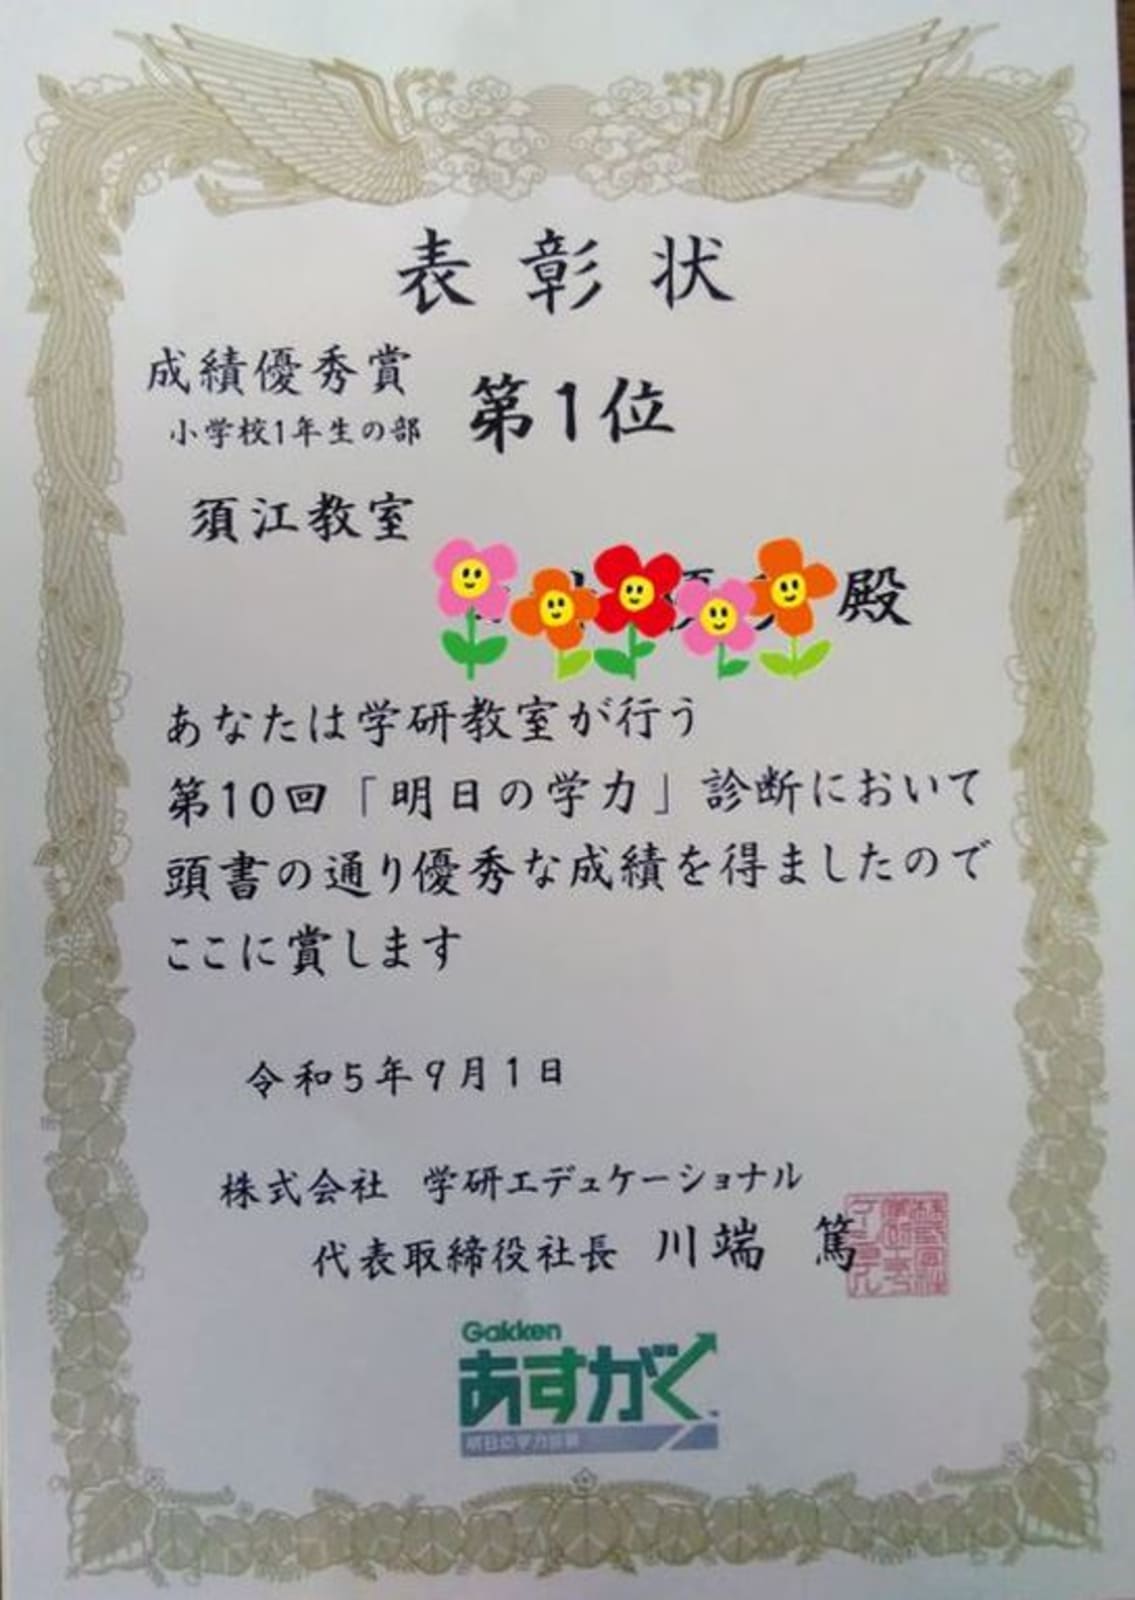 表彰状
成績優秀賞
小学校1年生の部
第1位
須江教室
殿
あなたは学研教室が行う
第10回「明日の学力」診断において
頭書の通り優秀な成績を得ましたので
ここに賞します
令和5年9月1日
株式会社 学研エデュケーショナル
代表取締役社長 川端 篤
Gakken
あすがく
明日の学力診断